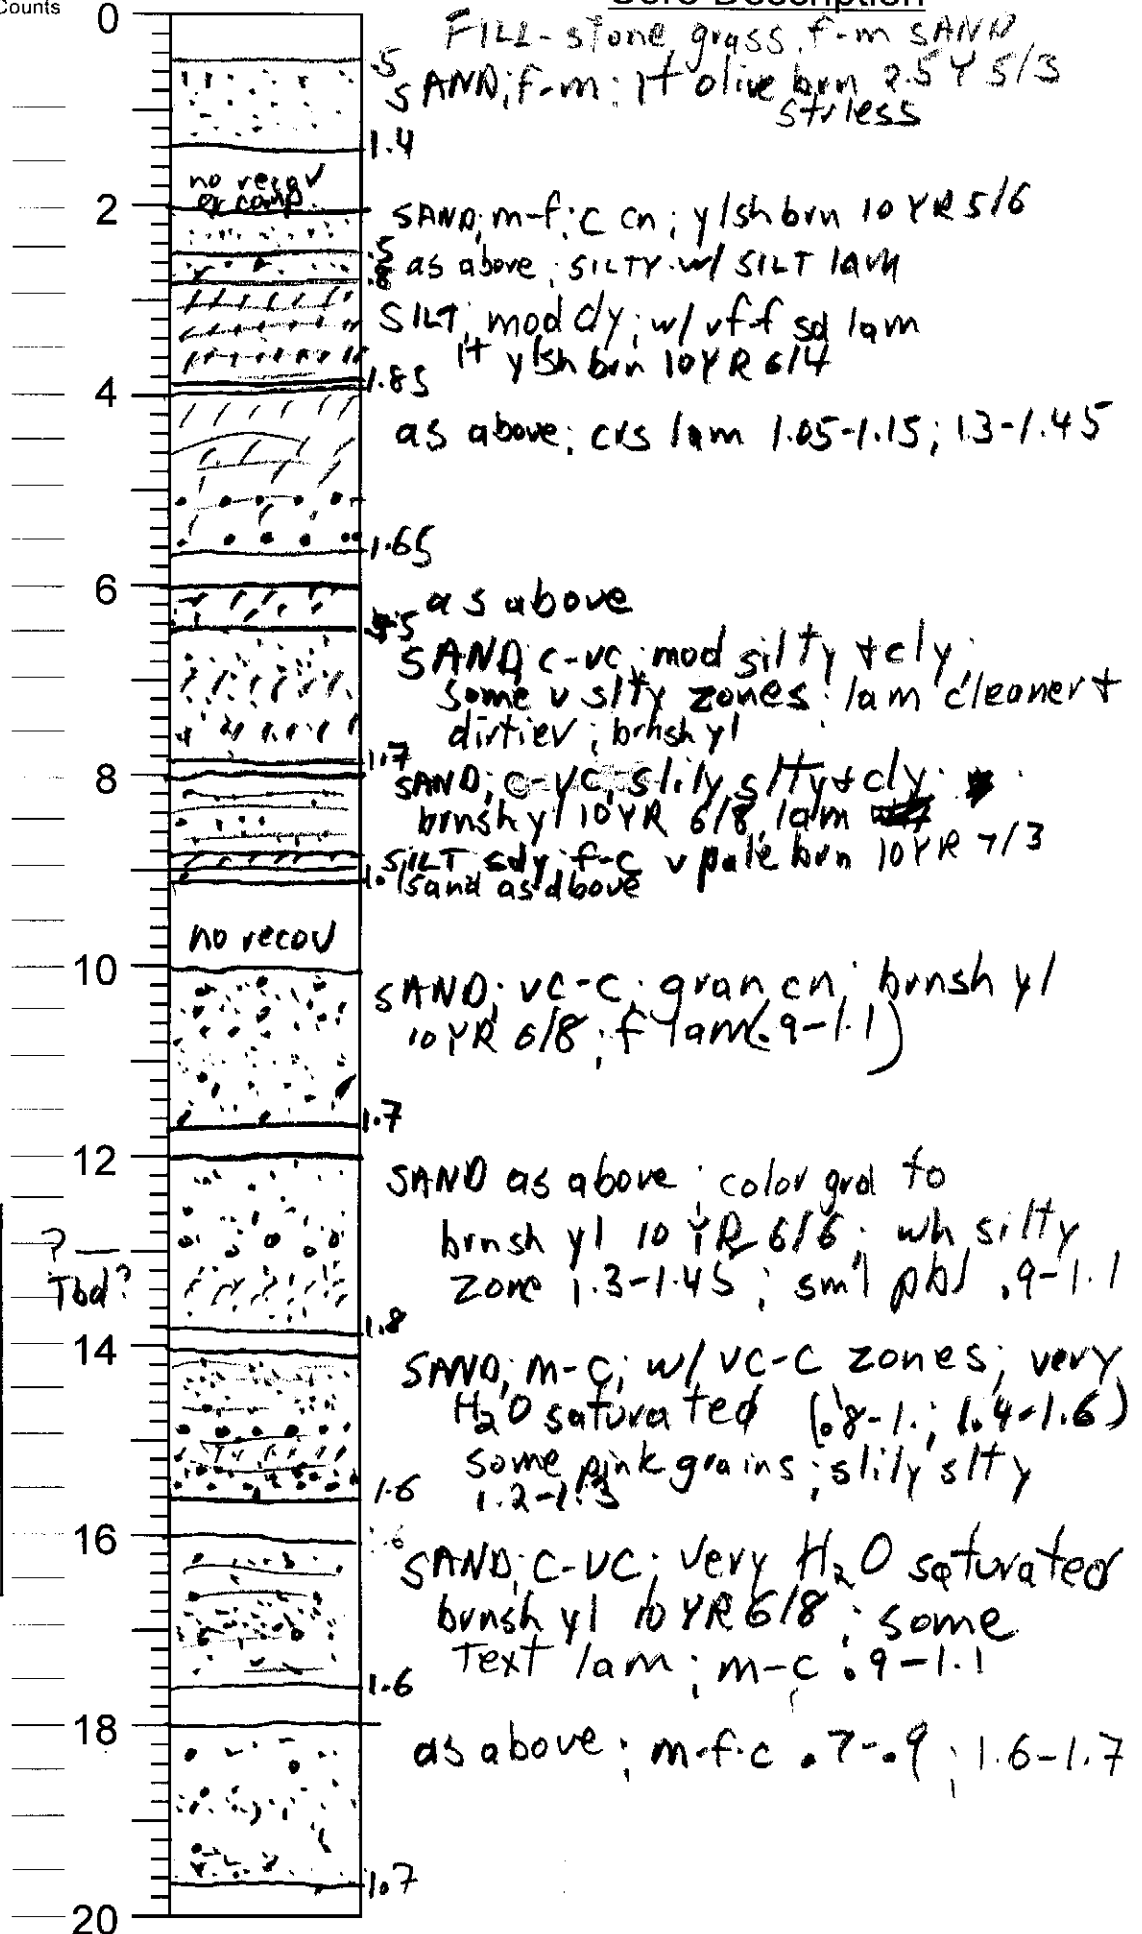 Counts
Core Description
0
FILL-stone, grass, f-m SAND
.5
SAND; f-m; lt olive brn 2.5Y 5/3
strless
1.4
no recov
or comp.
2
SAND; m-f; c cn; ylsh brn 10YR 5/6
.5
as above; SILTY w/ SILT lam
.8
SILT; mod cly; w/ vf-f sd lam
lt ylsh brn 10YR 6/4
1.85
4
as above; crs lam 1.05-1.15; 1.3-1.45
1.65
6
as above
SAND; c-vc; mod silty + cly;
some v slty zones; lam cleaner +
dirtier; brnsh yl
1.7
8
SAND; c-vc; slily slty + cly;
brnsh yl 10YR 6/8, lam
SILT sdy; f-c v pale brn 10YR 7/3
sand as above
no recov
10
SAND; vc-c; gran cn; brnsh yl
10YR 6/8; f lam (.9-1.1)
1.7
12
SAND as above; color grd to
brnsh yl 10YR 6/6; wh silty
zone 1.3-1.45; sml pbl .9-1.1
?
Tbd?
1.8
14
SAND; m-c; w/ vc-c zones; very
H2O saturated (.8-1.; 1.4-1.6)
some pink grains; slily slty
1.2-1.3
1.6
16
SAND; c-vc; very H2O saturated
brnsh yl 10YR 6/8; some
Text lam; m-c .9-1.1
1.6
18
as above; m-f-c .7-.9; 1.6-1.7
1.7
20